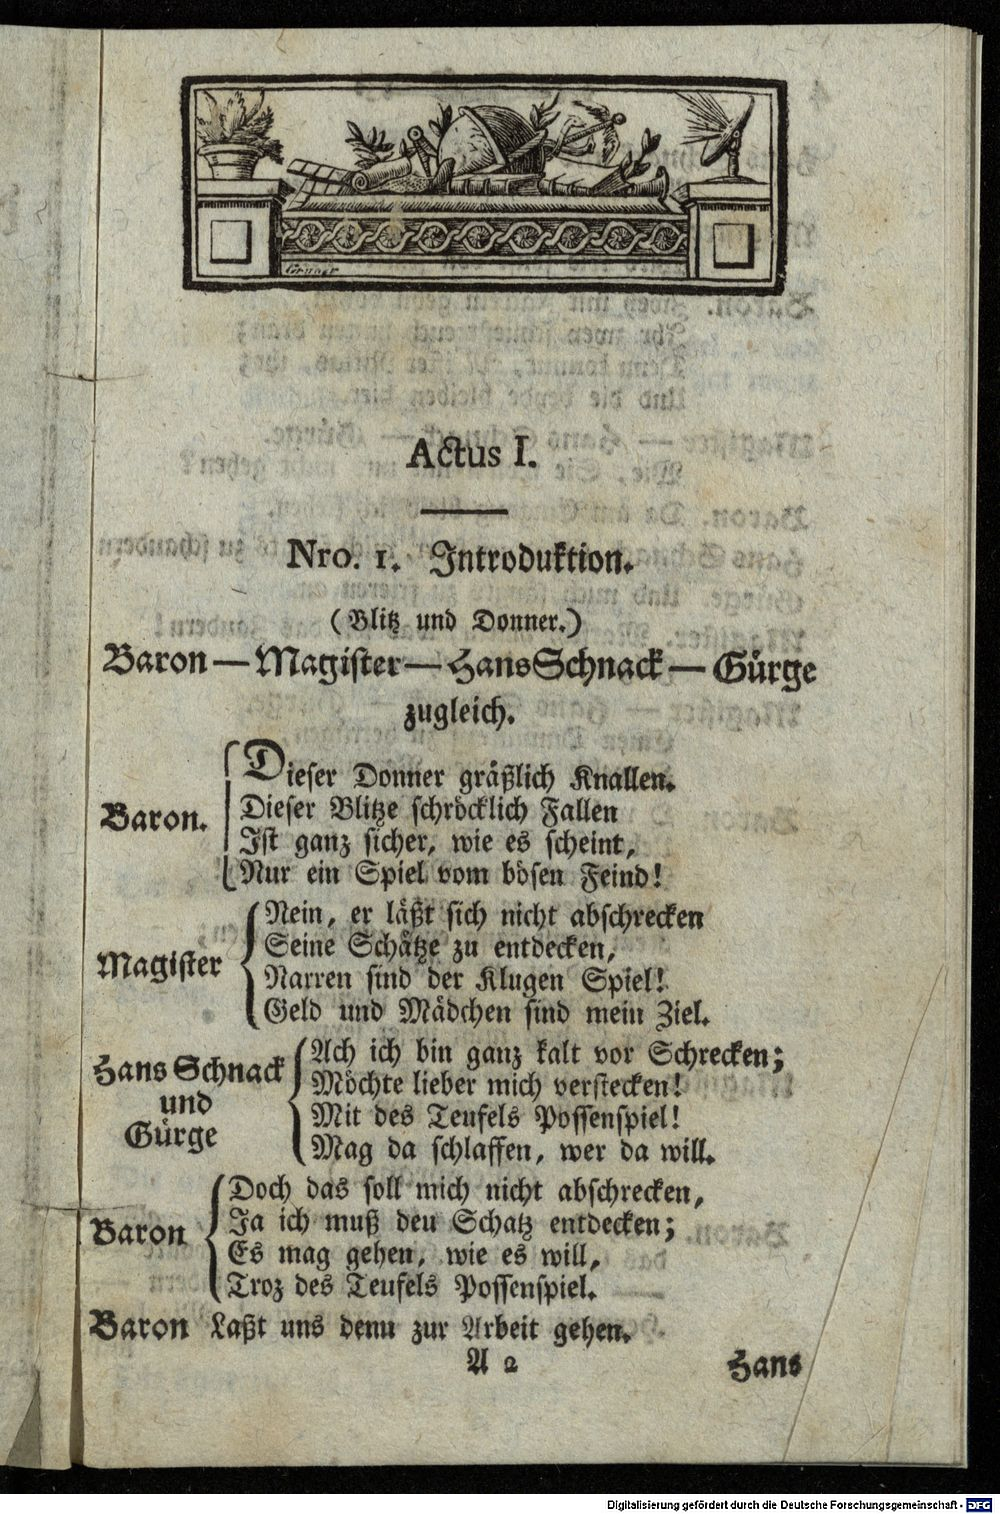 Gruner
Actus I.
Nro. 1. Introduktion.
(Blitz und Donner.)
Baron — Magister — Hans Schnack — Gürge
zugleich.
Baron.
Dieser Donner gräßlich Knallen.
Dieser Blitze schröcklich Fallen
Ist ganz sicher, wie es scheint,
Nur ein Spiel vom bösen Feind!
Magister
Nein, er läßt sich nicht abschrecken
Seine Schätze zu entdecken,
Narren sind der Klugen Spiel!
Geld und Mädchen sind mein Ziel.
Hans Schnack
und
Gürge
Ach ich bin ganz kalt vor Schrecken;
Möchte lieber mich verstecken!
Mit des Teufels Possenspiel!
Mag da schlaffen, wer da will.
Baron
Doch das soll mich nicht abschrecken,
Ja ich muß den Schatz entdecken;
Es mag gehen, wie es will,
Troz des Teufels Possenspiel.
Baron Laßt uns denn zur Arbeit gehen.
A 2 Hans
Digitalisierung gefördert durch die Deutsche Forschungsgemeinschaft - DFG